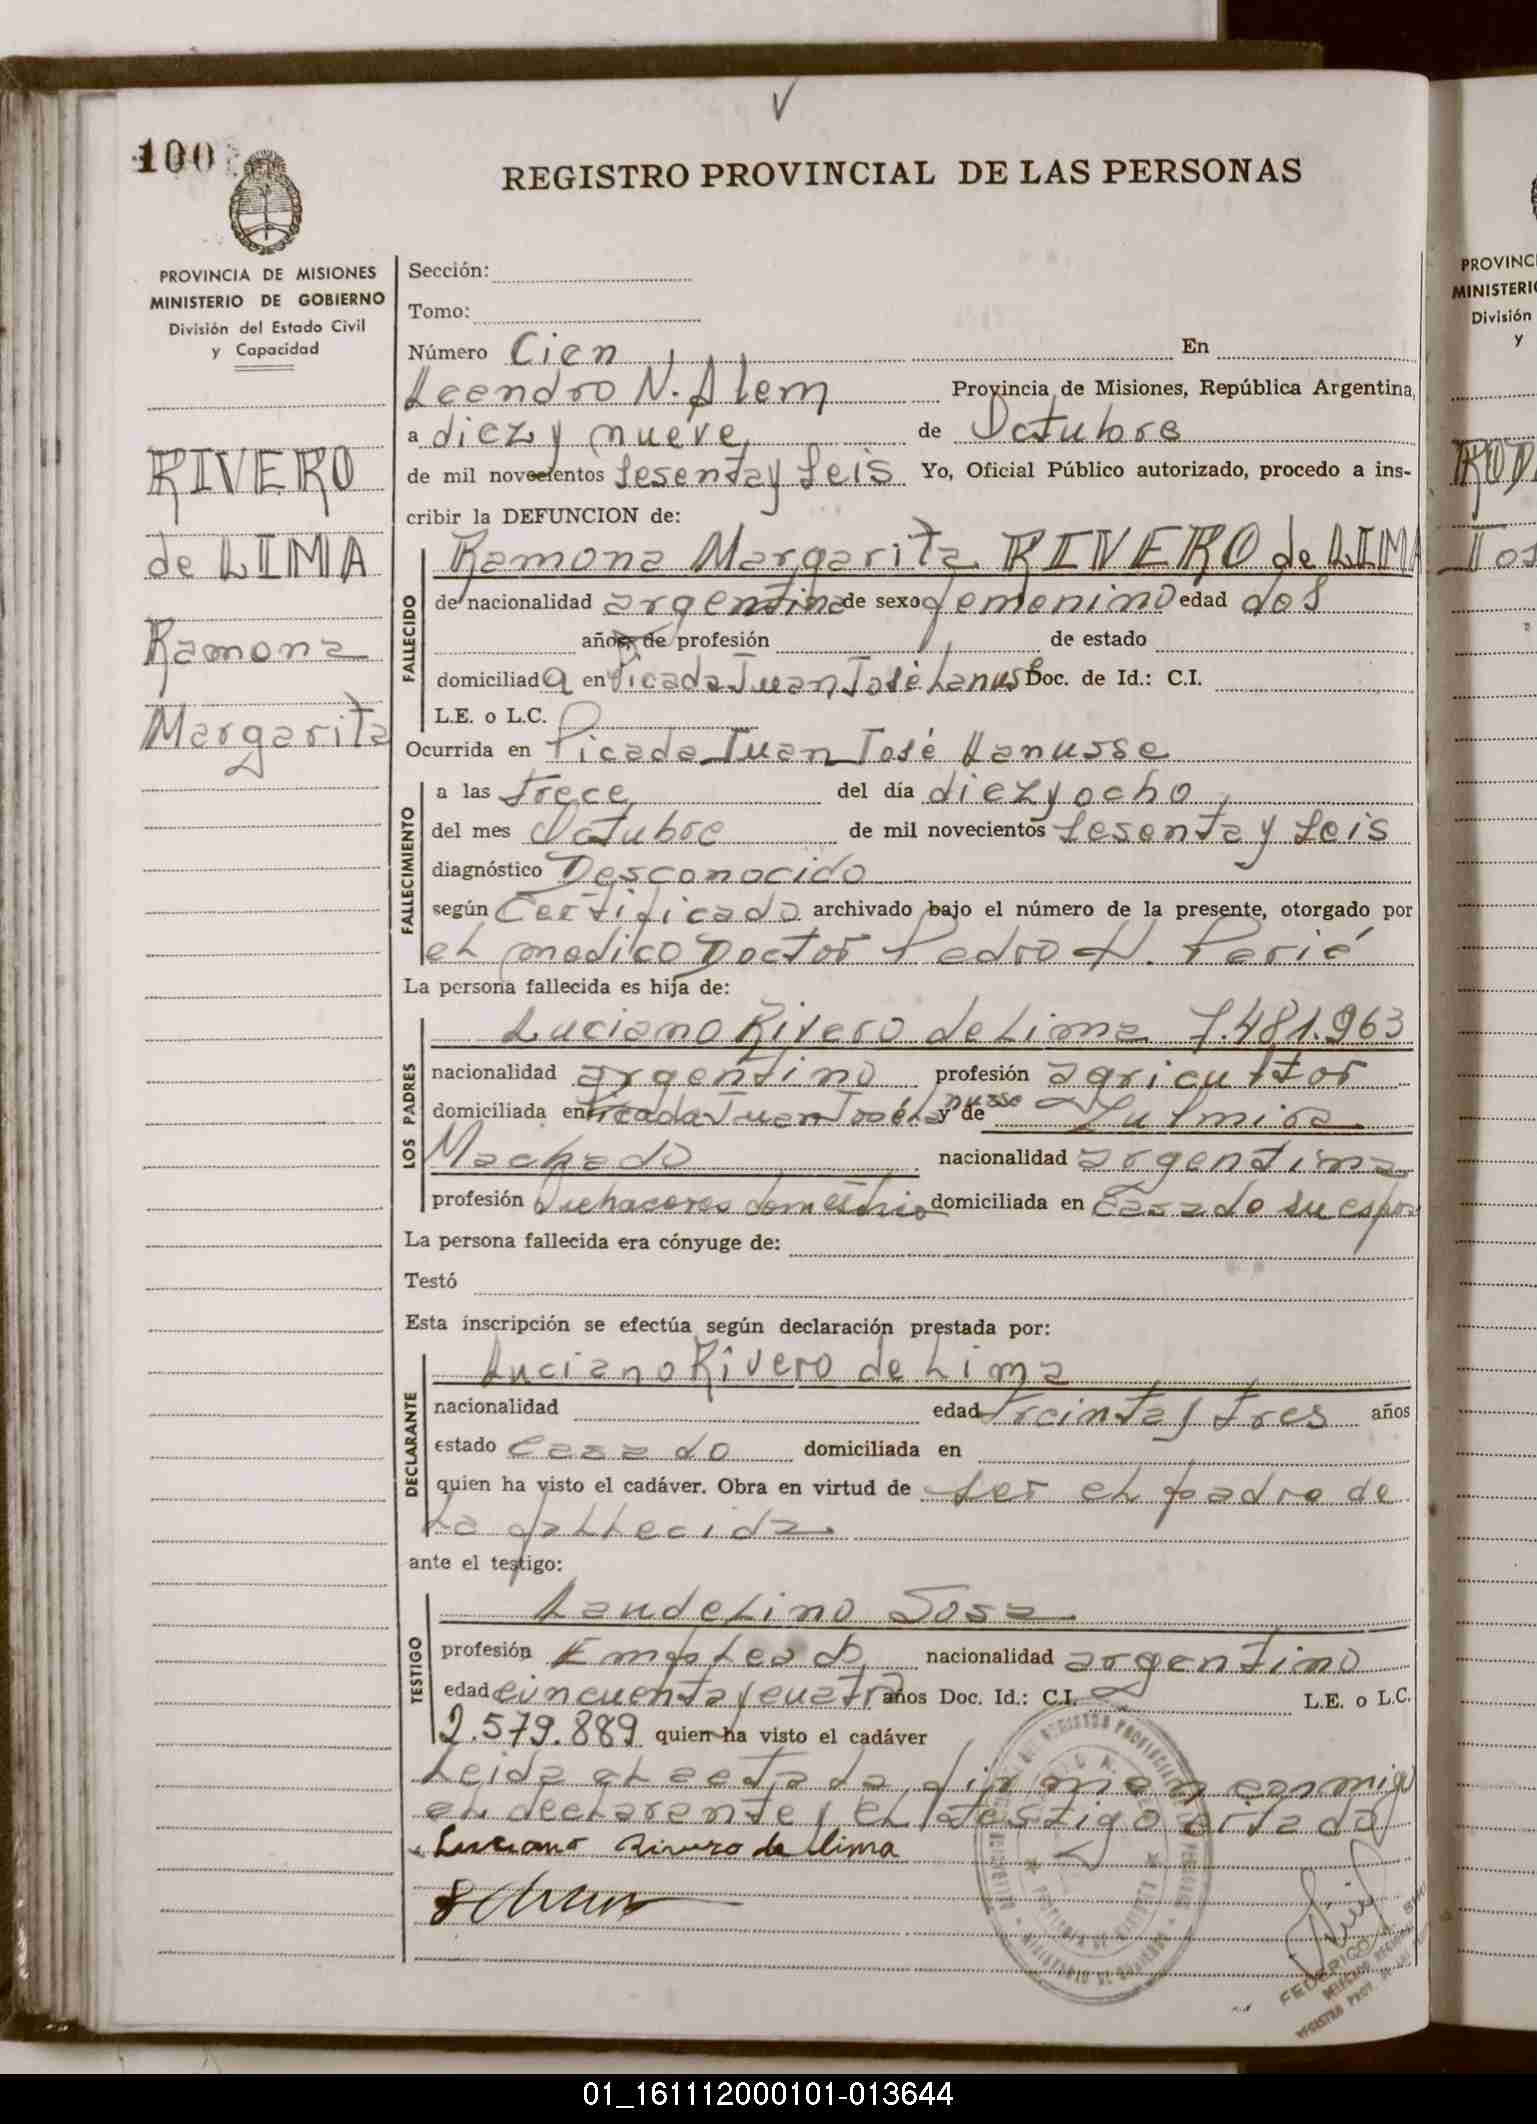 100
REGISTRO PROVINCIAL DE LAS PERSONAS
PROVINCIA DE MISIONES
MINISTERIO DE GOBIERNO
División del Estado Civil
y Capacidad
RIVERO
de LIMA
Ramona
Margarita
Sección:
Tomo:
Número Cien En
Leandro N. Alem Provincia de Misiones, República Argentina,
a diez y nueve de Octubre
de mil novecientos sesenta y seis Yo, Oficial Público autorizado, procedo a ins-
cribir la DEFUNCION de:
FALLECIDO
Ramona Margarita RIVERO de LIMA
de nacionalidad argentina de sexo femenino edad dos
años de profesión de estado
domiciliada en Picada Juan José Lanusse Doc. de Id.: C.I.
L.E. o L.C.
Ocurrida en Picada Juan José Lanusse
FALLECIMIENTO
a las trece del día diez y ocho
del mes Octubre de mil novecientos sesenta y seis
diagnóstico Desconocido
según Certificado archivado bajo el número de la presente, otorgado por
el medico Doctor Pedro H. Perié
La persona fallecida es hija de:
LOS PADRES
Luciano Rivero de Lima 7.481.963
nacionalidad argentino profesión agricultor
domiciliada en Picada Juan José Lanusse y de Zulmira
Machado nacionalidad argentina
profesión Quehaceres domestico domiciliada en Casa de su esposo
La persona fallecida era cónyuge de:
Testó
Esta inscripción se efectúa según declaración prestada por:
DECLARANTE
Luciano Rivero de Lima
nacionalidad edad treinta y tres años
estado Casado domiciliada en
quien ha visto el cadáver. Obra en virtud de ser el padre de
la fallecida
ante el testigo:
TESTIGO
Laudelino Sosa
profesión Empleado nacionalidad argentino
edad cincuenta y cuatro años Doc. Id.: C.I. L.E. o L.C.
2.579.889 quien ha visto el cadáver
Leida el acta la firman conmigo
el declarante y el testigo citado
Luciano Rivero de Lima
FEDERICO
DELEGADO
REGISTRO PROV.
PROVINC
MINISTERI
División
y
ROD
Jos
01_161112000101-013644